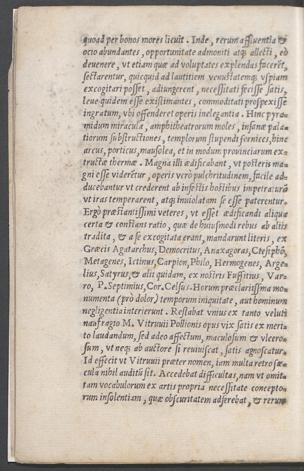 quoad per bonos mores licuit. Inde, rerum affluentia &
ocio abundantes, opportunitate admoniti atq; allecti, eò
deuenere, vt etiam quæ ad voluptates explendas facerēt,
sectarentur, quicquid ad lautitiem venustatemq; vspiam
excogitari posset, adiungerent, necessitati fecisse satis,
leue quidem esse existimantes, commoditati prospexisse
ingratum, vbi offenderet operis inelegantia. Hinc pyra-
midum miracula, amphitheatrorum moles, insanæ pala-
tiorum substructiones, templorum stupendi fornices, hinc
arcus, porticus, mausolea, et in modum prouinciarum ex-
tructæ thermæ. Magna illi ædificabant, vt posteris ma-
gni esse viderētur, operis verò pulchritudinem, facilè ad-
ducebantur vt crederent ab infestis hostibus impetraturā
vt iras temperarent, atq; inuiolatam se esse paterentur.
Ergò præstantissimi veteres, vt esset ædificandi aliqua
certa & constans ratio, quæ de huiusmodi rebus ab aliis
tradita, & a se excogitata erant, mandarunt literis, ex
Græcis Agatarchus, Democritus, Anaxagoras, Ctesiphō,
Metagenes, Ictinus, Carpion, Philo, Hermogenes, Arge-
lius, Satyrus, & alii quidam, ex nostris Fuffitius, Var-
ro, P. Septimius, Cor. Celsus. Horum præclarissima mo-
numenta (prò dolor) temporum iniquitate, aut hominum
negligentia interierunt. Restabat vnus ex tanto veluti
naufragio M. Vitruuii Pollionis opus vix satis ex meri-
to laudandum, sed adeo affectum, maculosum & vlcero-
sum, vt neq; ab auctore si reuiuiscat, satis agnoscatur.
Id effecit vt Vitruuii præter nomen, iam multa retro sæ-
cula nihil auditū sit. Accedebat difficultas, nam vt omit-
tam vocabulorum ex artis propria necessitate concepto-
rum insolentiam, quæ obscuritatem adserebat, & rerum